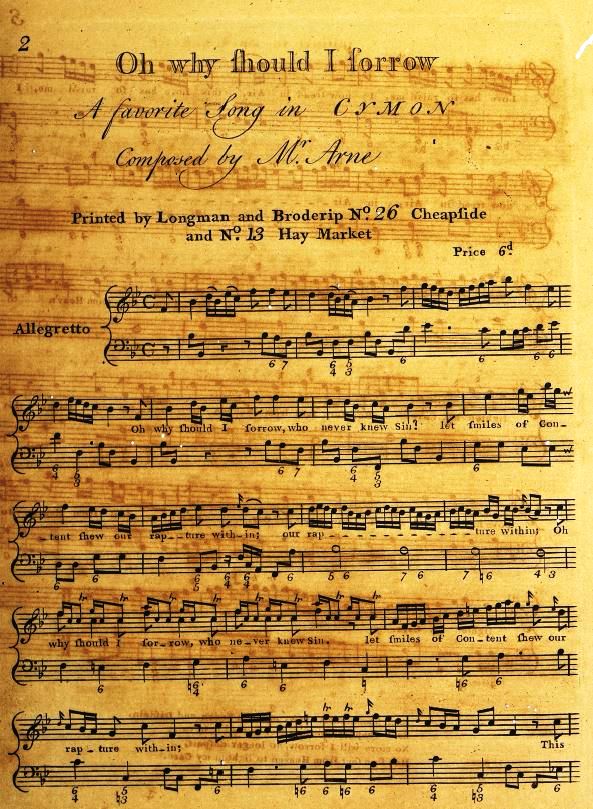 2
Oh why ſhould I ſorrow
A favorite Song in CYMON
Composed by Mr. Arne
Printed by Longman and Broderip No. 26 Cheapſide
and No. 13 Hay Market
Price 6d.
Allegretto
Oh why ſhould I ſorrow, who never knew Sin! let ſmiles of Con-
tent ſhew our rap-ture with-in; our rap- - - - - - - - - - - - - - ture within; Oh
why ſhould I ſor-row, who ne-ver knew Sin. let ſmiles of Con-tent ſhew our
rap-ture with-in; This